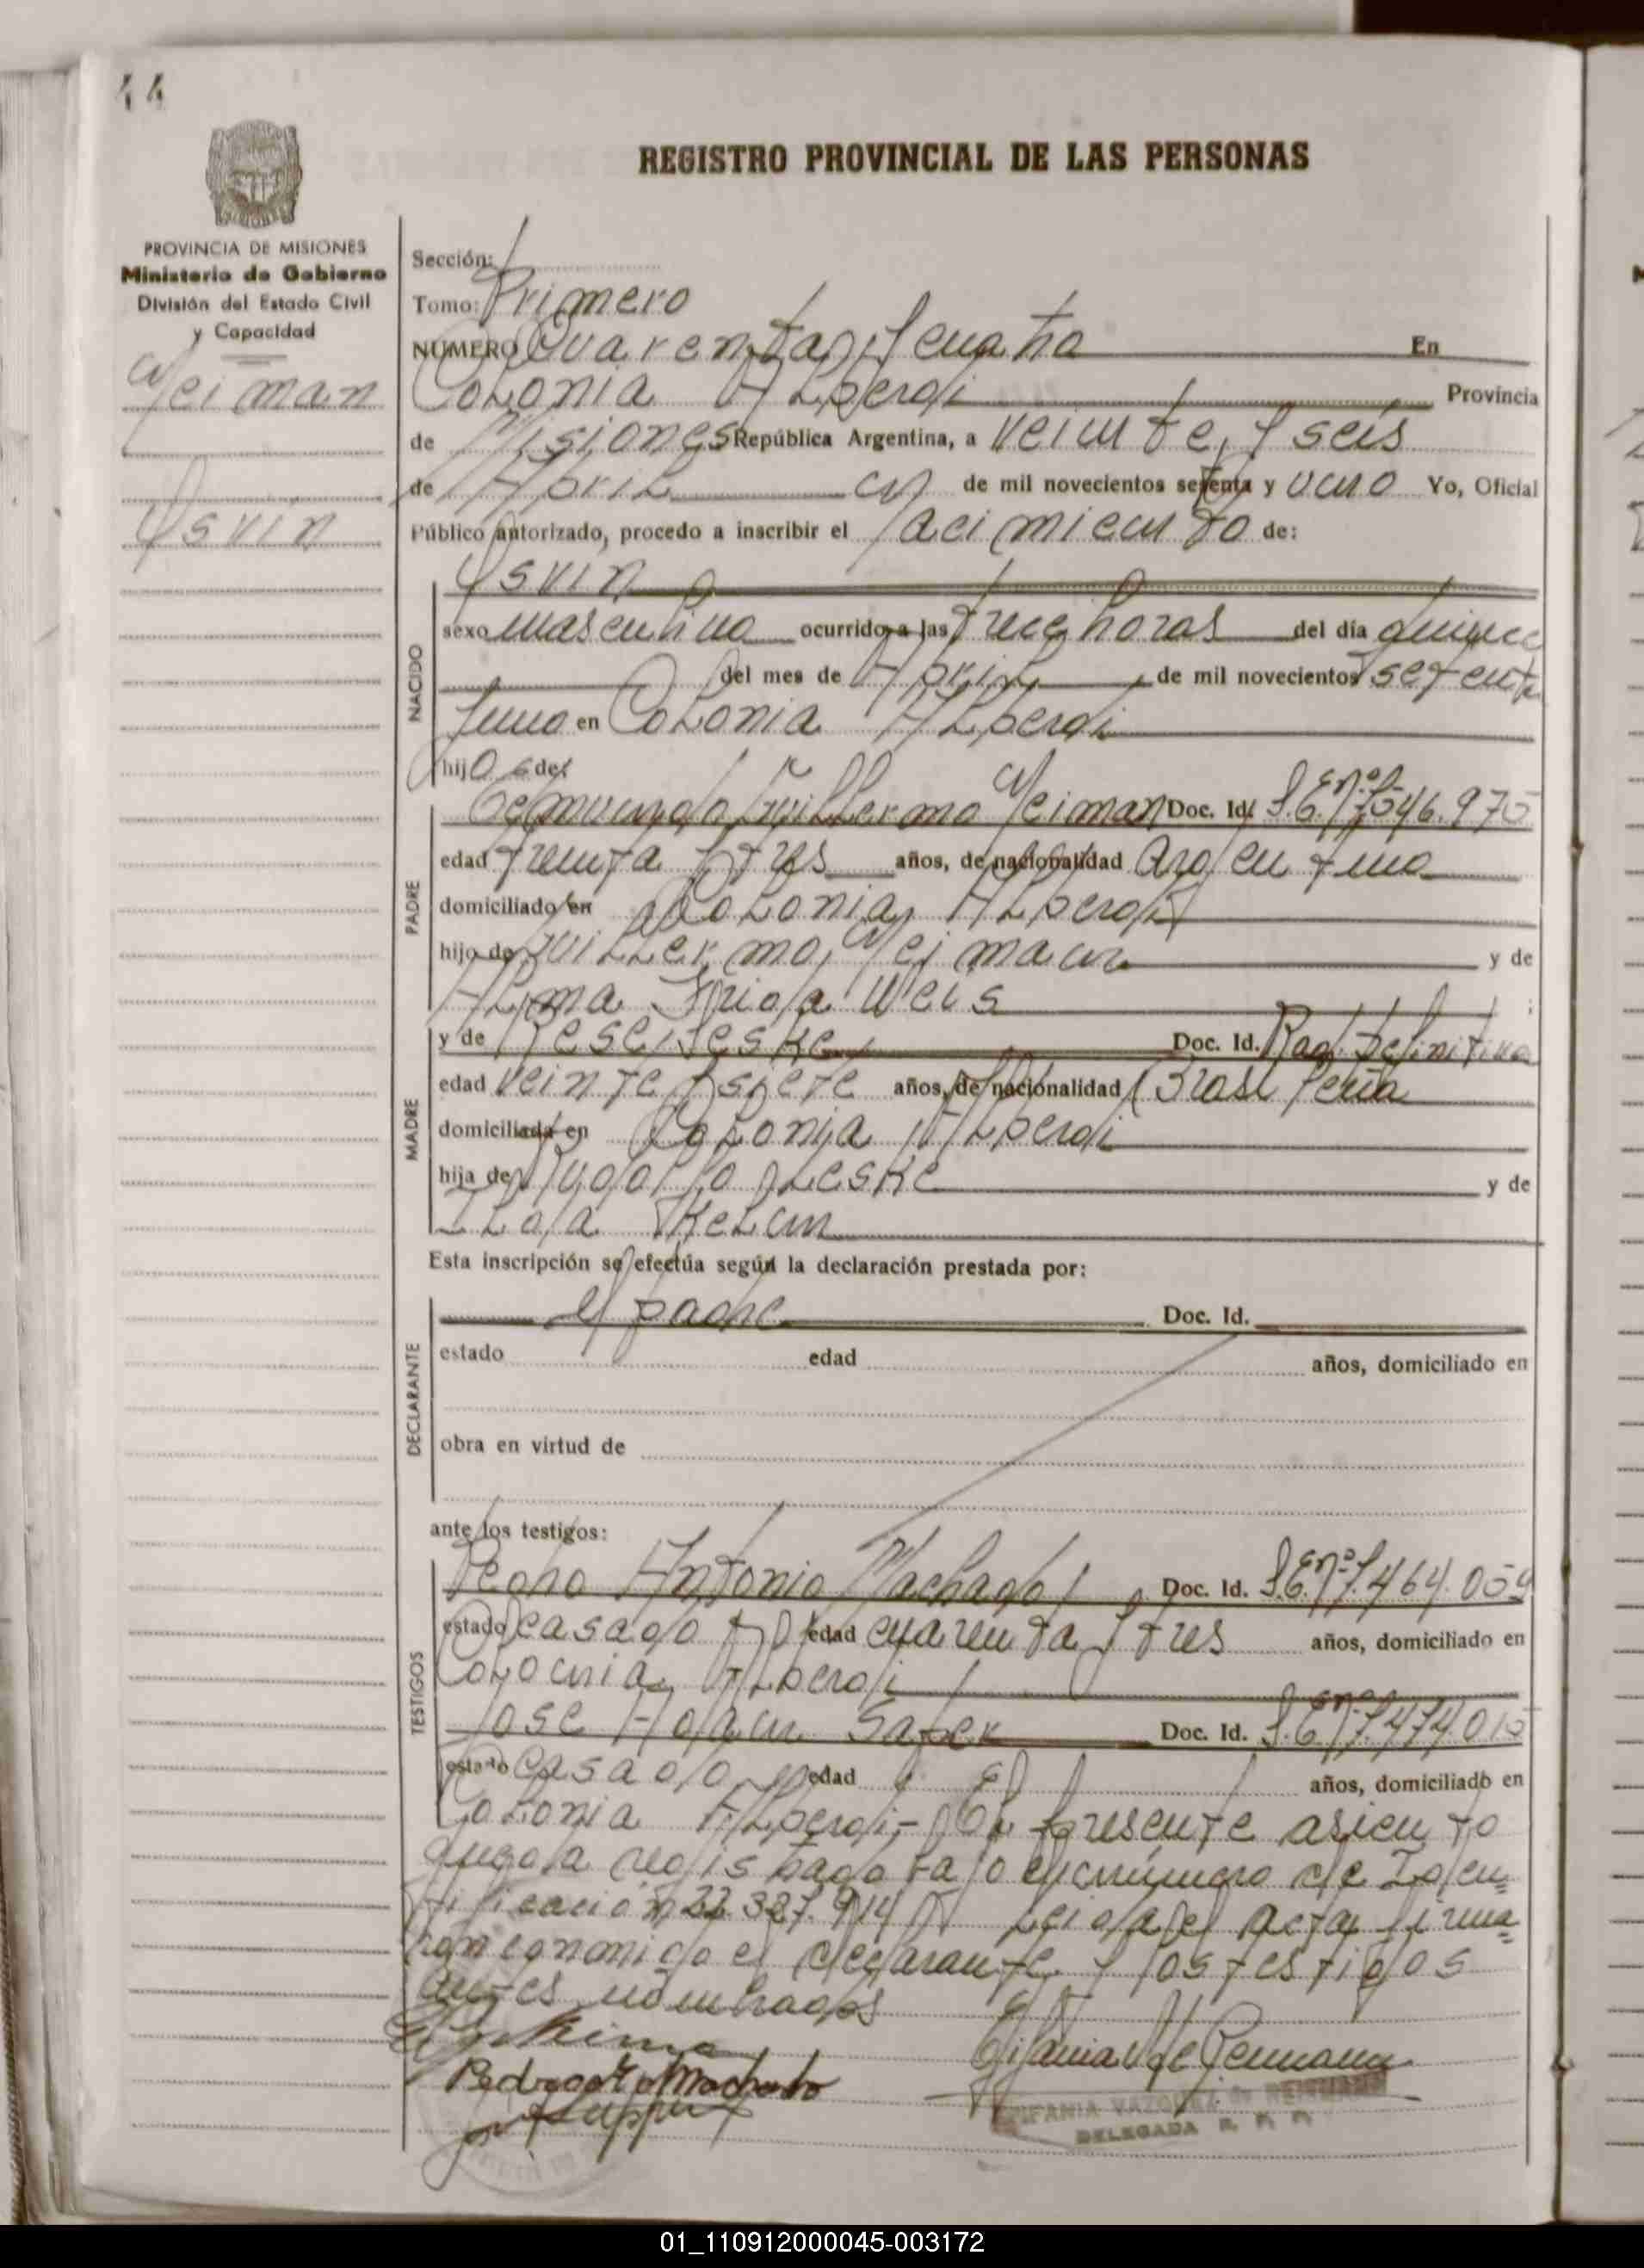 44
REGISTRO PROVINCIAL DE LAS PERSONAS
PROVINCIA DE MISIONES
Ministerio de Gobierno
División del Estado Civil
y Capacidad
Neiman
Ysvin
Sección:
Tomo: Primero
NUMERO Cuarenta y cuatro En
Colonia Alberdi Provincia
de Misiones República Argentina, a veinte y seis
de Abril de mil novecientos setenta y uno Yo, Oficial
Público autorizado, procedo a inscribir el Nacimiento de:
NACIDO
Ysvin
sexo masculino ocurrido a las trece horas del día quince
del mes de Abril de mil novecientos setenta
y uno en Colonia Alberdi
hijo de:
PADRE
Edmundo Guillermo Neiman Doc. Id. 7.546.975
edad treinta y tres años, de nacionalidad Argentino
domiciliado en Colonia Alberdi
hijo de Guillermo Neiman y de
Alma Frida Weis
MADRE
y de Doc. Id. Rad. Definitiva
edad veinte y siete años, de nacionalidad Brasileña
domiciliada en Colonia Alberdi
hija de Leske y de
Ilda
Esta inscripción se efectúa según la declaración prestada por:
DECLARANTE
el padre Doc. Id.
estado edad años, domiciliado en
obra en virtud de
ante los testigos:
TESTIGOS
Pedro Antonio Machado Doc. Id. 7.464.059
estado casado edad cuarenta y tres años, domiciliado en
Colonia Alberdi
José Adan Doc. Id. 7.474.015
estado casado edad años, domiciliado en
Colonia Alberdi- El presente asiento
queda registrado bajo el número de Iden=
tificación 22.327.914 Leida el acta firma=
ron conmigo el declarante y los testigos
antes nombrados
Pedro Machado
EPIFANIA VAZQUEZ de REHMANN
DELEGADA R. P. P.
01_110912000045-003172